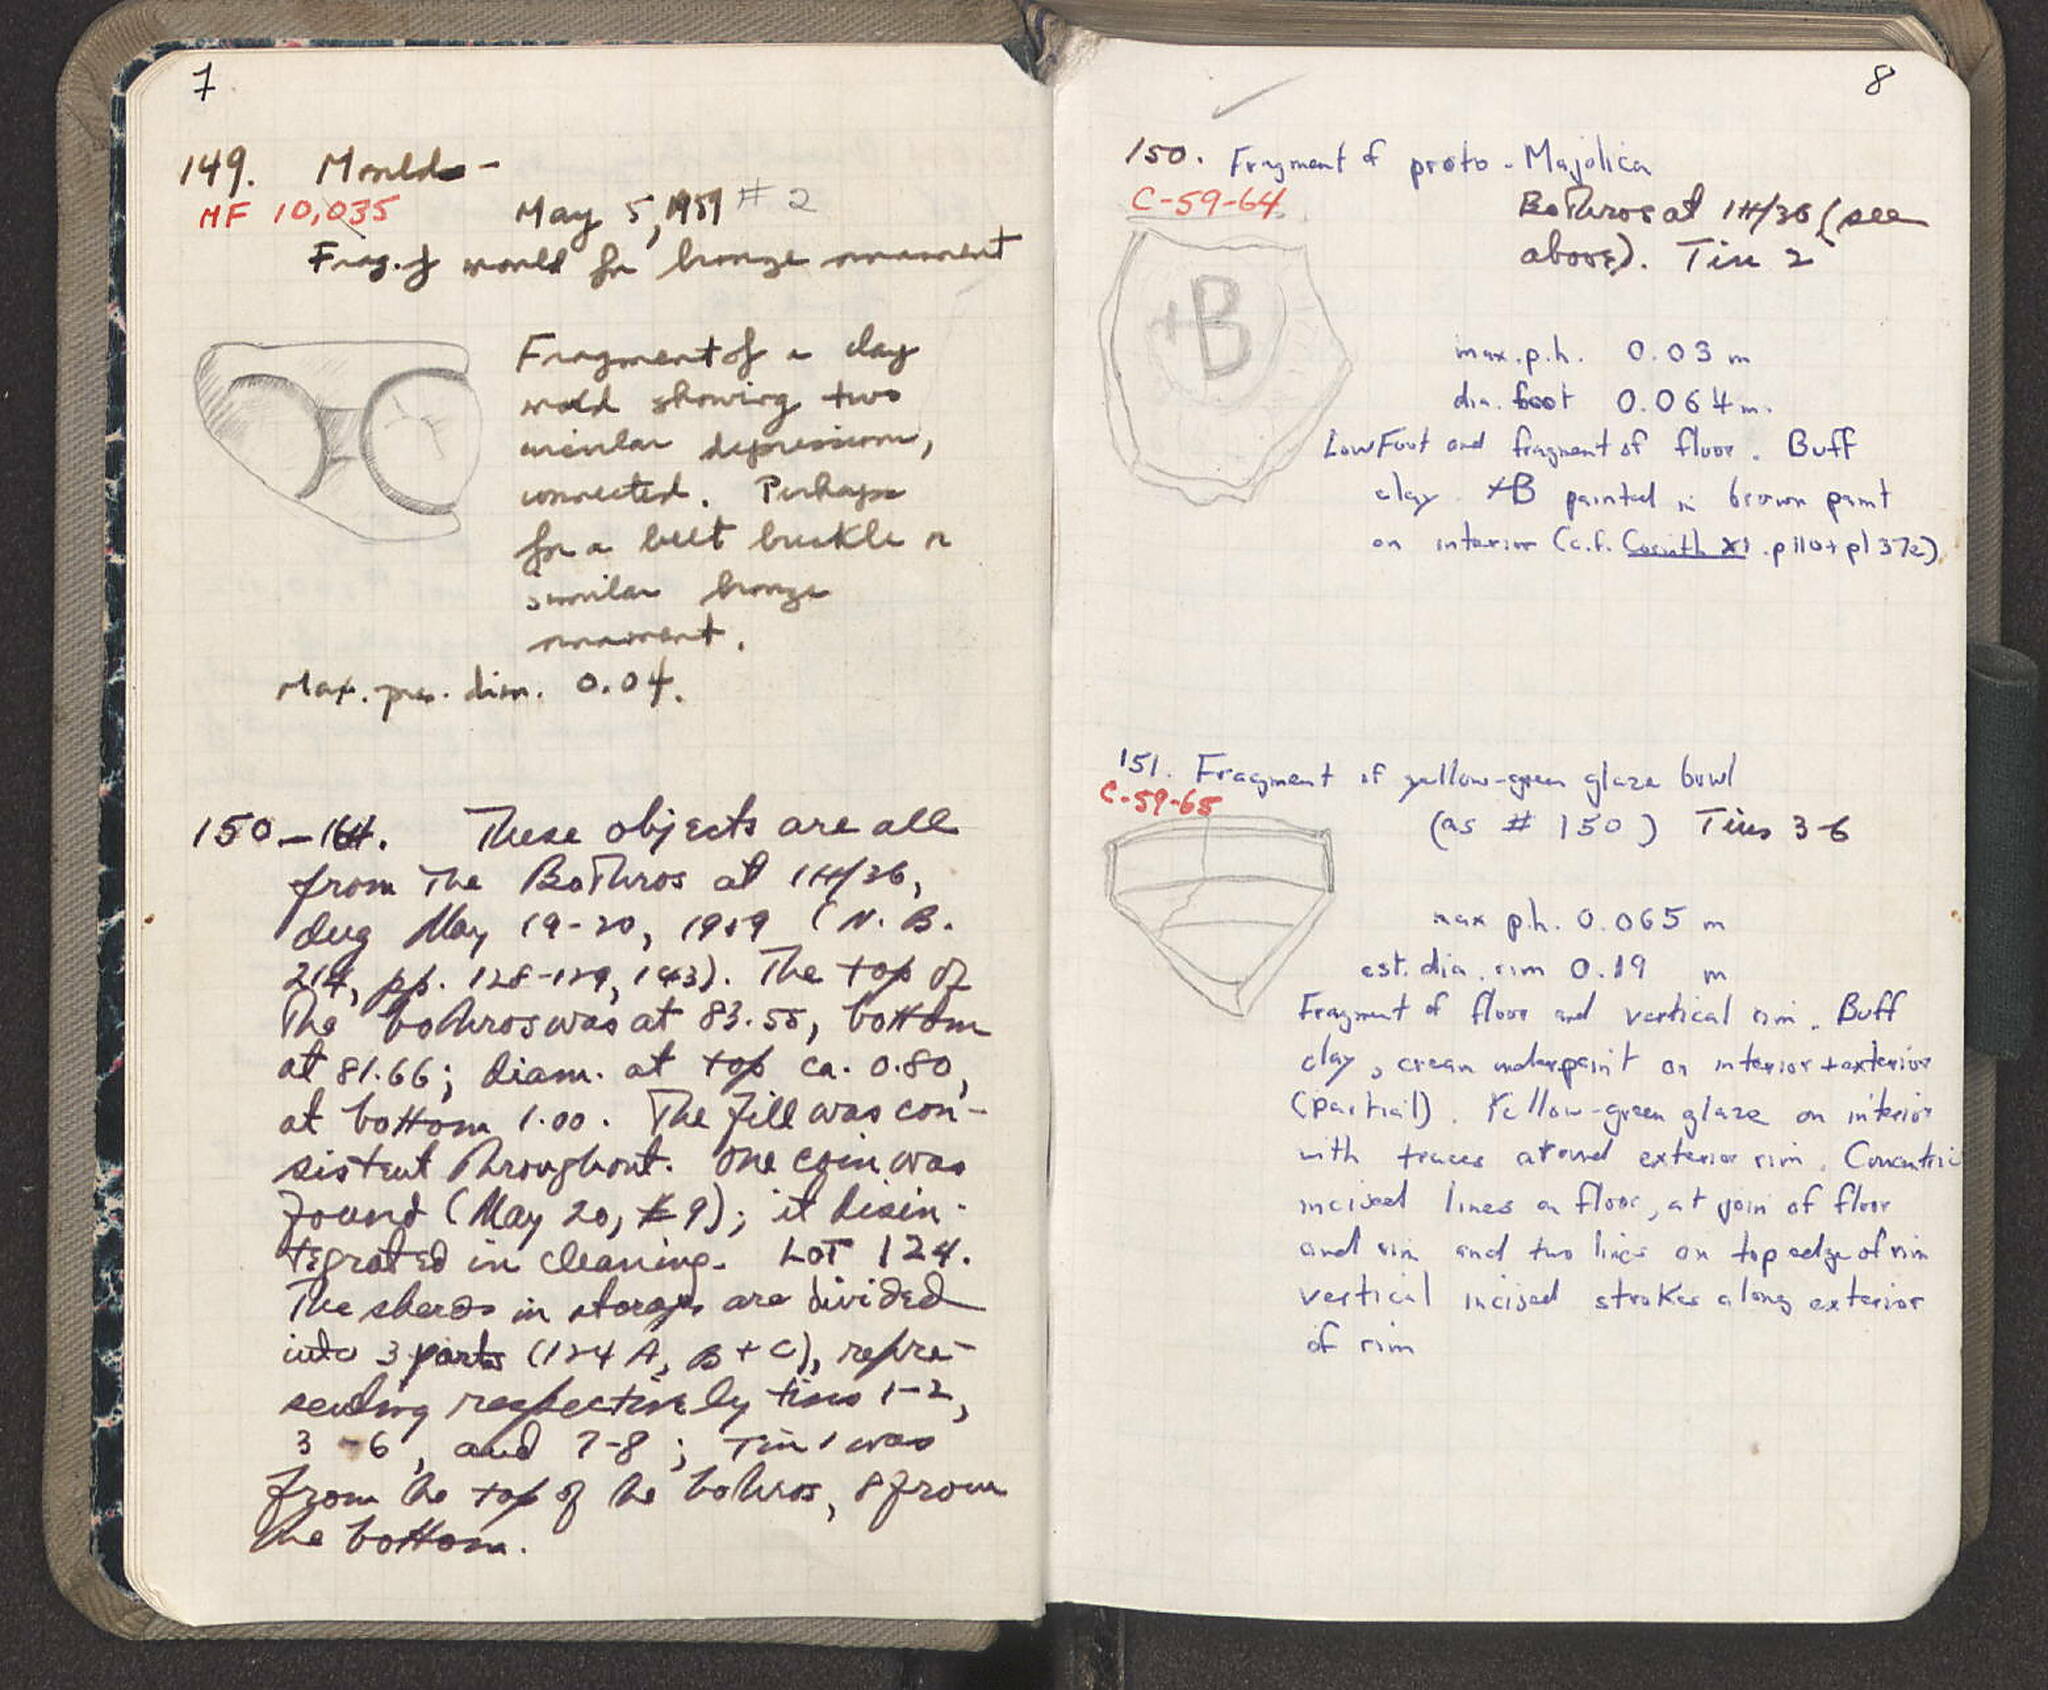 7
149. Mould -
MF 10,035 May 5, 1959 #2
Frag. of mould for bronze ornament
Fragment of a clay
mold showing two
circular depressions,
connected. Perhaps
for a belt buckle or
similar bronze
ornament.
Max. pres. dim. 0.04.
150-164. These objects are all
from the Bothros at 1H/36,
dug May 19-20, 1959 (N.B.
214, pp. 128-129, 143). The top of
the bothros was at 83.55, bottom
at 81.66; diam. at top ca. 0.80,
at bottom 1.00. The fill was con-
sistent throughout. One coin was
found (May 20, #9); it disin-
tegrated in cleaning. Lot 124.
The sherds in storage are divided
into 3 parts (124 A, B + C), repre-
senting respectively tins 1-2,
3-6, and 7-8; Tin 1 was
from the top of the bothros, 8 from
the bottom.
8
150. Fragment of proto-Majolica
C-59-64
Bothros at 1H/36 (see
above). Tin 2
+B
max. p.h. 0.03 m
dia. foot 0.064 m.
Low Foot and fragment of floor. Buff
clay. +B painted in brown paint
on interior (c.f. Corinth XI. p110 + pl 37e)
151. Fragment of yellow-green glaze bowl
C-59-65
(as # 150) Tins 3-6
max p.h. 0.065 m
est. dia. rim 0.19 m
Fragment of floor and vertical rim. Buff
clay, cream underpaint on interior + exterior
(partial). Yellow-green glaze on interior
with traces around exterior rim. Concentric
incised lines on floor, at join of floor
and rim and two lines on top edge of rim
vertical incised strokes along exterior
of rim